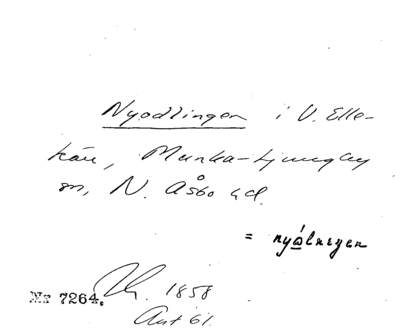 Nyodlingen i V. Elle-
kärr, Munka-Ljungby
sn, N. Åsbo hd.
= nyålnızen
Nr 7264. 1858
Aut 61.